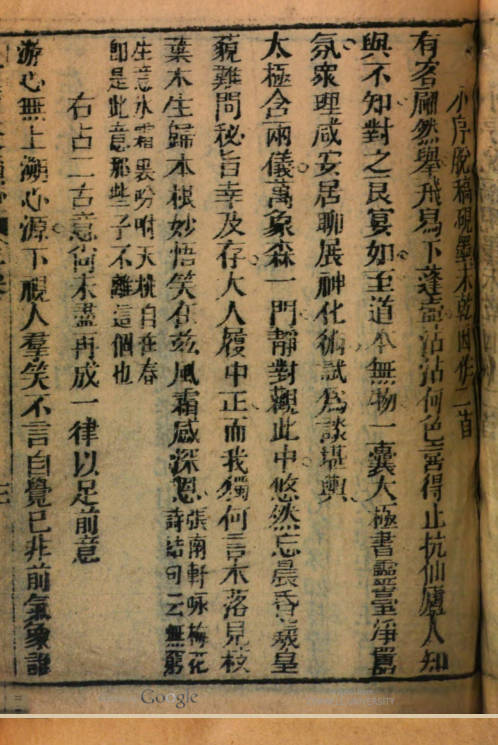 小序脫稿硯墨未乾因作二首
有客翩然舉飛舄下蓬壺沾沾何色喜得止抗仙廬人知
與不知對之良宴如至道本無物一囊大極書靈臺淨氛
氛衆理咸安居聊展神化術試為談堪輿
太極含兩儀萬象森一門靜對觀此中悠然忘晨昏羲皇
藐難問秘旨幸及存大人履中正而我獨何言木落見枝
葉木生歸本根妙悟笑在茲風霜感深恩張南軒咏梅花
詩結句云無窮
生意氷霜裏吩咐天桃自在春
卽是此意那些子不離這個也
右占二古意尚未盡再成一律以足前意
游心無上溯心源下視人羣笑不言自覺已非前氣象誰
Google